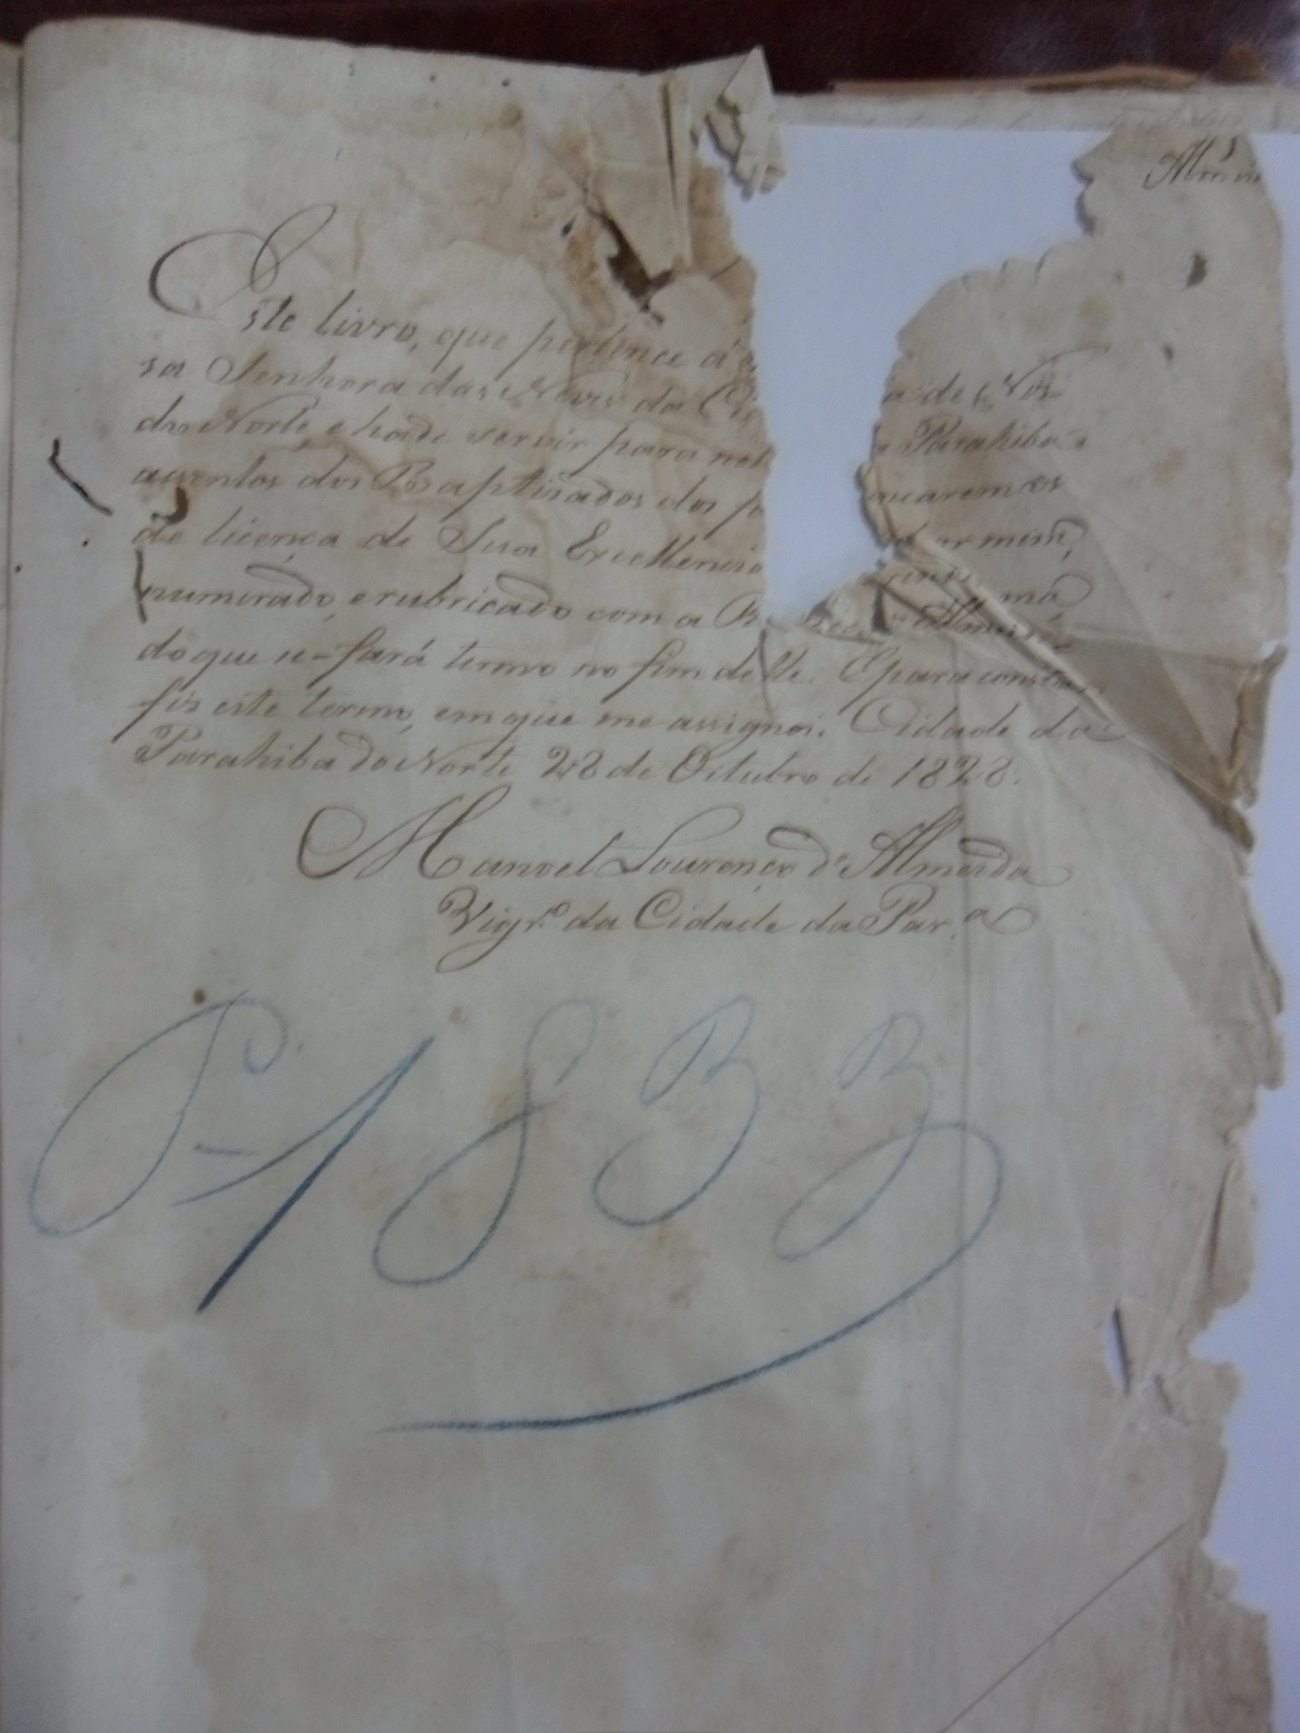 Este livro, que pertence á
sa Senhora das Neves da Ci de Nos-
do Norte, e hade servir para Parahiba
assentos dos Baptisados dos
de licença de Sua Excellencia por mim,
numerado, e rubricado com a
do que se-fará termo no fim delle. E para constar
fiz este termo, em que me assignei. Cidade da
Parahiba do Norte 28 de Oitubro de 1828.
Manoel Lourenço d'Almeida
Vigr.º da Cidade da Par.a
P-1833